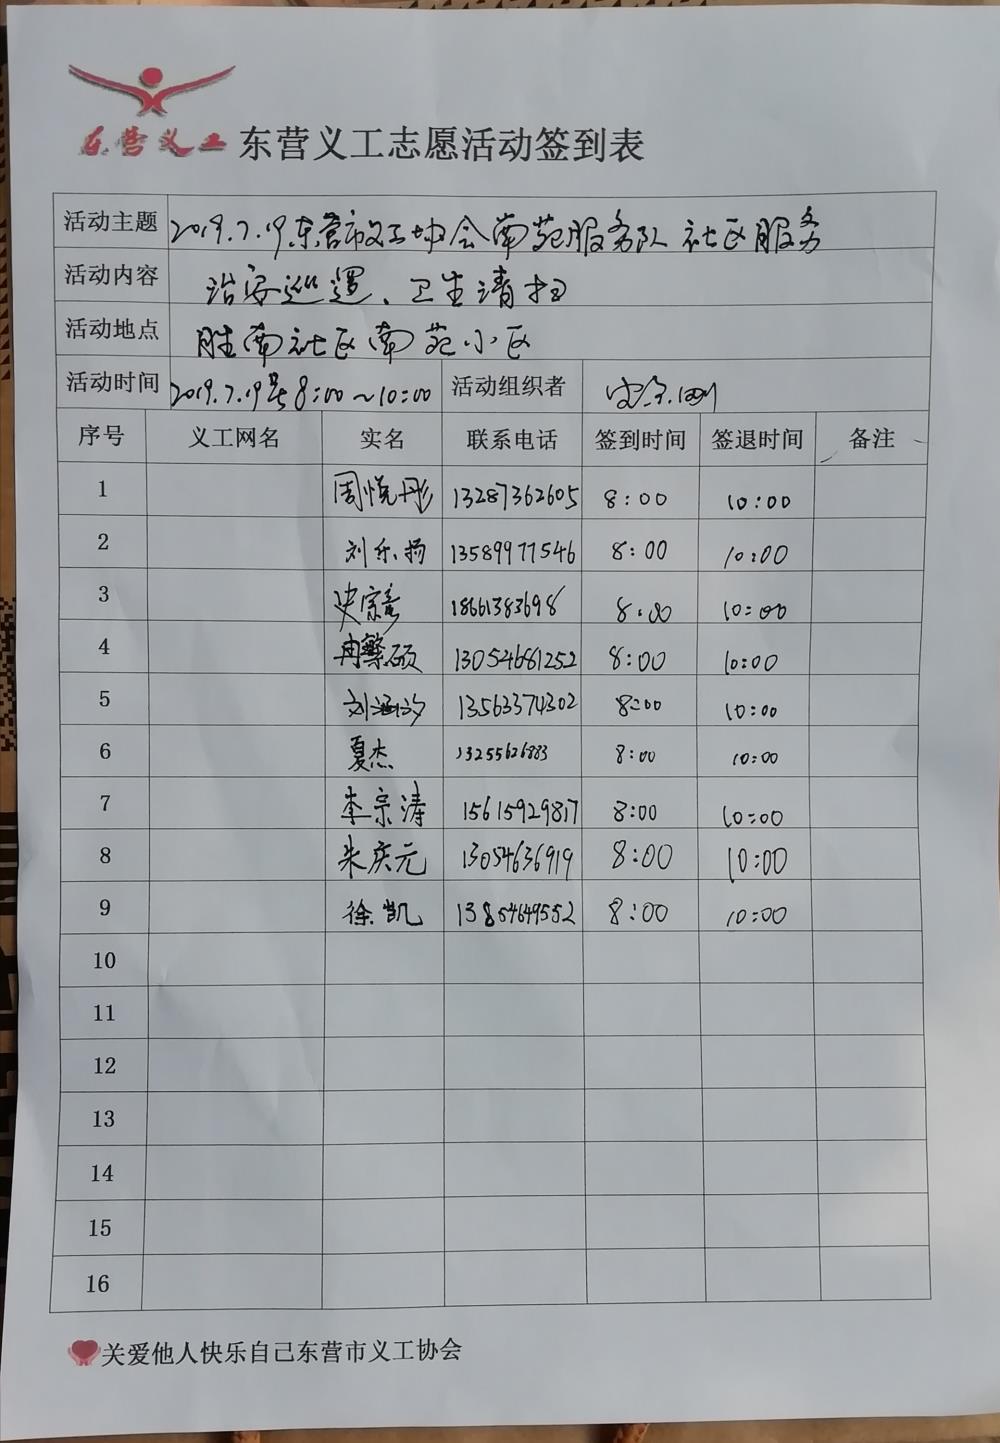 东营义工 东营义工志愿活动签到表
活动主题 2019.7.19东营市义工协会南苑服务队社区服务
活动内容 治安巡逻、卫生清扫
活动地点 胜南社区南苑小区
活动时间 2019.7.19号8:00~10:00 活动组织者
序号 义工网名 实名 联系电话 签到时间 签退时间 备注
1 周悦彤 13287362605 8:00 10:00
2 刘乐扬 13589977546 8:00 10:00
3 18661383698 8:00 10:00
4 冉繁硕 13054681252 8:00 10:00
5 刘涵汐 13563374302 8:00 10:00
6 夏杰 13255626883 8:00 10:00
7 李宗涛 15615929817 8:00 10:00
8 朱庆元 13054636919 8:00 10:00
9 徐凯 13854649552 8:00 10:00
10
11
12
13
14
15
16
关爱他人快乐自己东营市义工协会